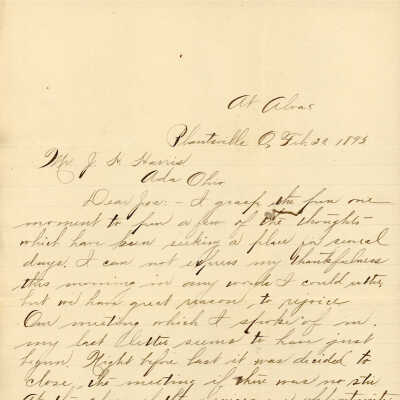 At Alvas
Plantsville O, Feb. 22 1893
Mr J. H. Harris
Ada Ohio
Dear Joe:- I grasp the pen one
moment to pen a few of the thoughts
which have been seeking a place in several
days. I can not express my thankfulness
this morning in any words I could utter
but we have great reason to rejoice
Our meeting which I spoke of in
my last letter seems to have just
begun. Night before last it was decided to
close, the meeting if there was no